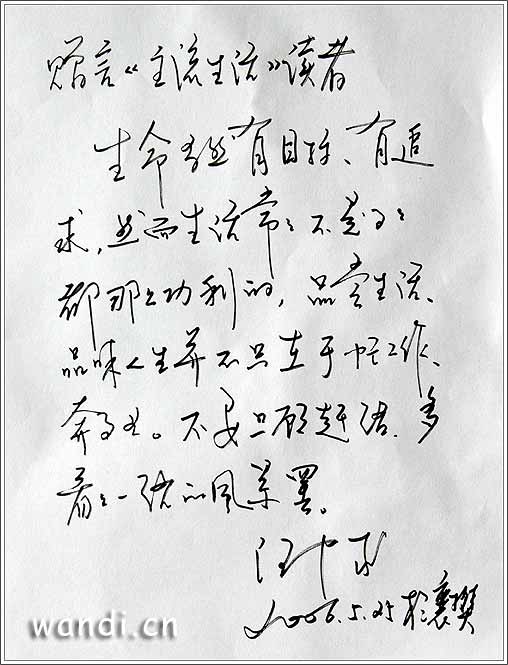 赠言《主流生活》读者
生命当然有目标、有追
求，然而生活常常不是事事
都那么功利的，品尝生活、
品味人生并不只在于忙工作、
奔事业。不要只顾赶路，多
看看一路的风景署。
汪中求
2006.5.25於襄樊
wandi.cn